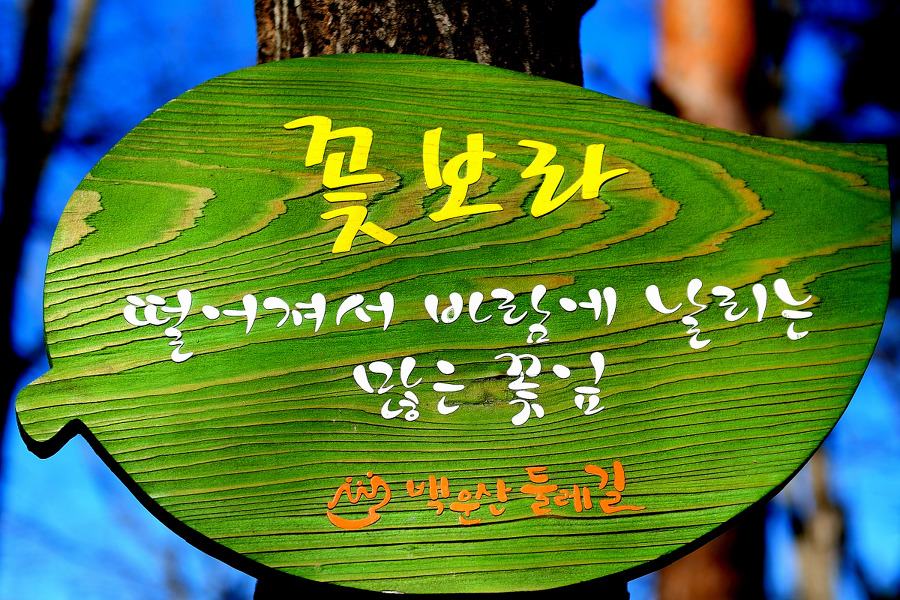 꽃보라
떨어져서 바람에 날리는
많은 꽃잎
백운산 둘레길